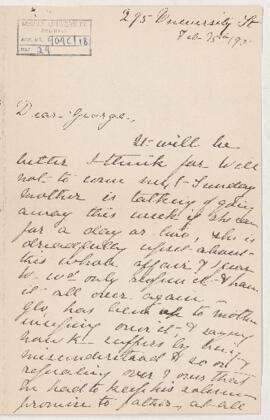 295 University St
Feb. 25th 19
McGILL UNIVERSITY
ARCHIVES
ACC. NO. 909C/18
REF. 29
Dear George,
It will be
better I think for Will
not to come next Sunday
mother is talking of going
away this week if she can
for a day or two, she is
dreadfully upset about
this whole affair & fears
to we'd only reopen it & have
it all over again -
has been up to mother
over it, & saying
how suffers by being
misunderstood & so on &
repeating over & over that
he had to keep his solemn
promise to father, at all